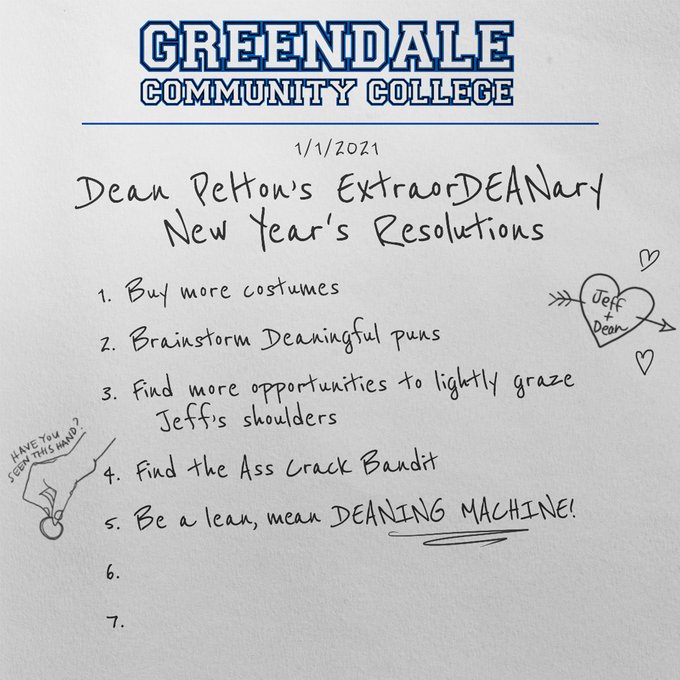 GREENDALE
COMMUNITY COLLEGE
1/1/2021
Dean Pelton's ExtraorDEANary
New Year's Resolutions
1. Buy more costumes
2. Brainstorm Deaningful puns
3. Find more opportunities to lightly graze
Jeff's shoulders
4. Find the Ass Crack Bandit
5. Be a lean, mean DEANING MACHINE!
6.
7.
Jeff
+
Dean
HAVE YOU
SEEN THIS HAND?